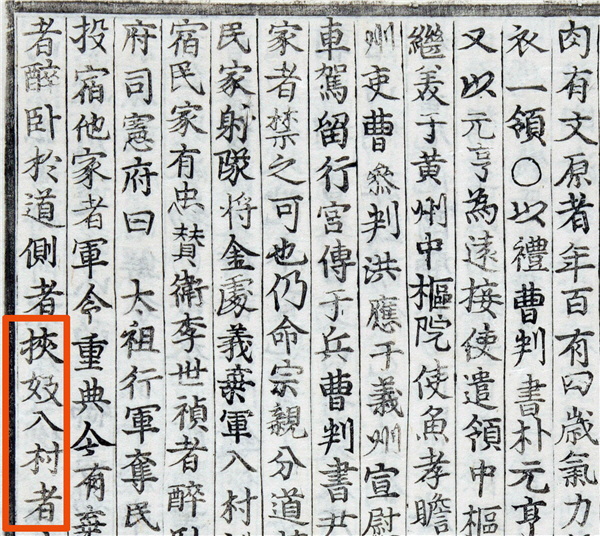 肉有文原者年百有四歲氣力
衣一領○以禮曹判書朴元亨
又以元亨為遠接使遣領中樞
繼美于黃州中樞院使魚孝瞻
州吏曹叅判洪應于義州宣慰
車駕留行宮傳于兵曹判書尹
家者禁之可也仍命宗親分道
民家射隊將金處義棄軍入村
宿民家有忠賛衛李世禎者醉
府司憲府曰 太祖行軍奪民
投宿他家者軍令重典今有棄
者醉卧於道側者挾妓入村者